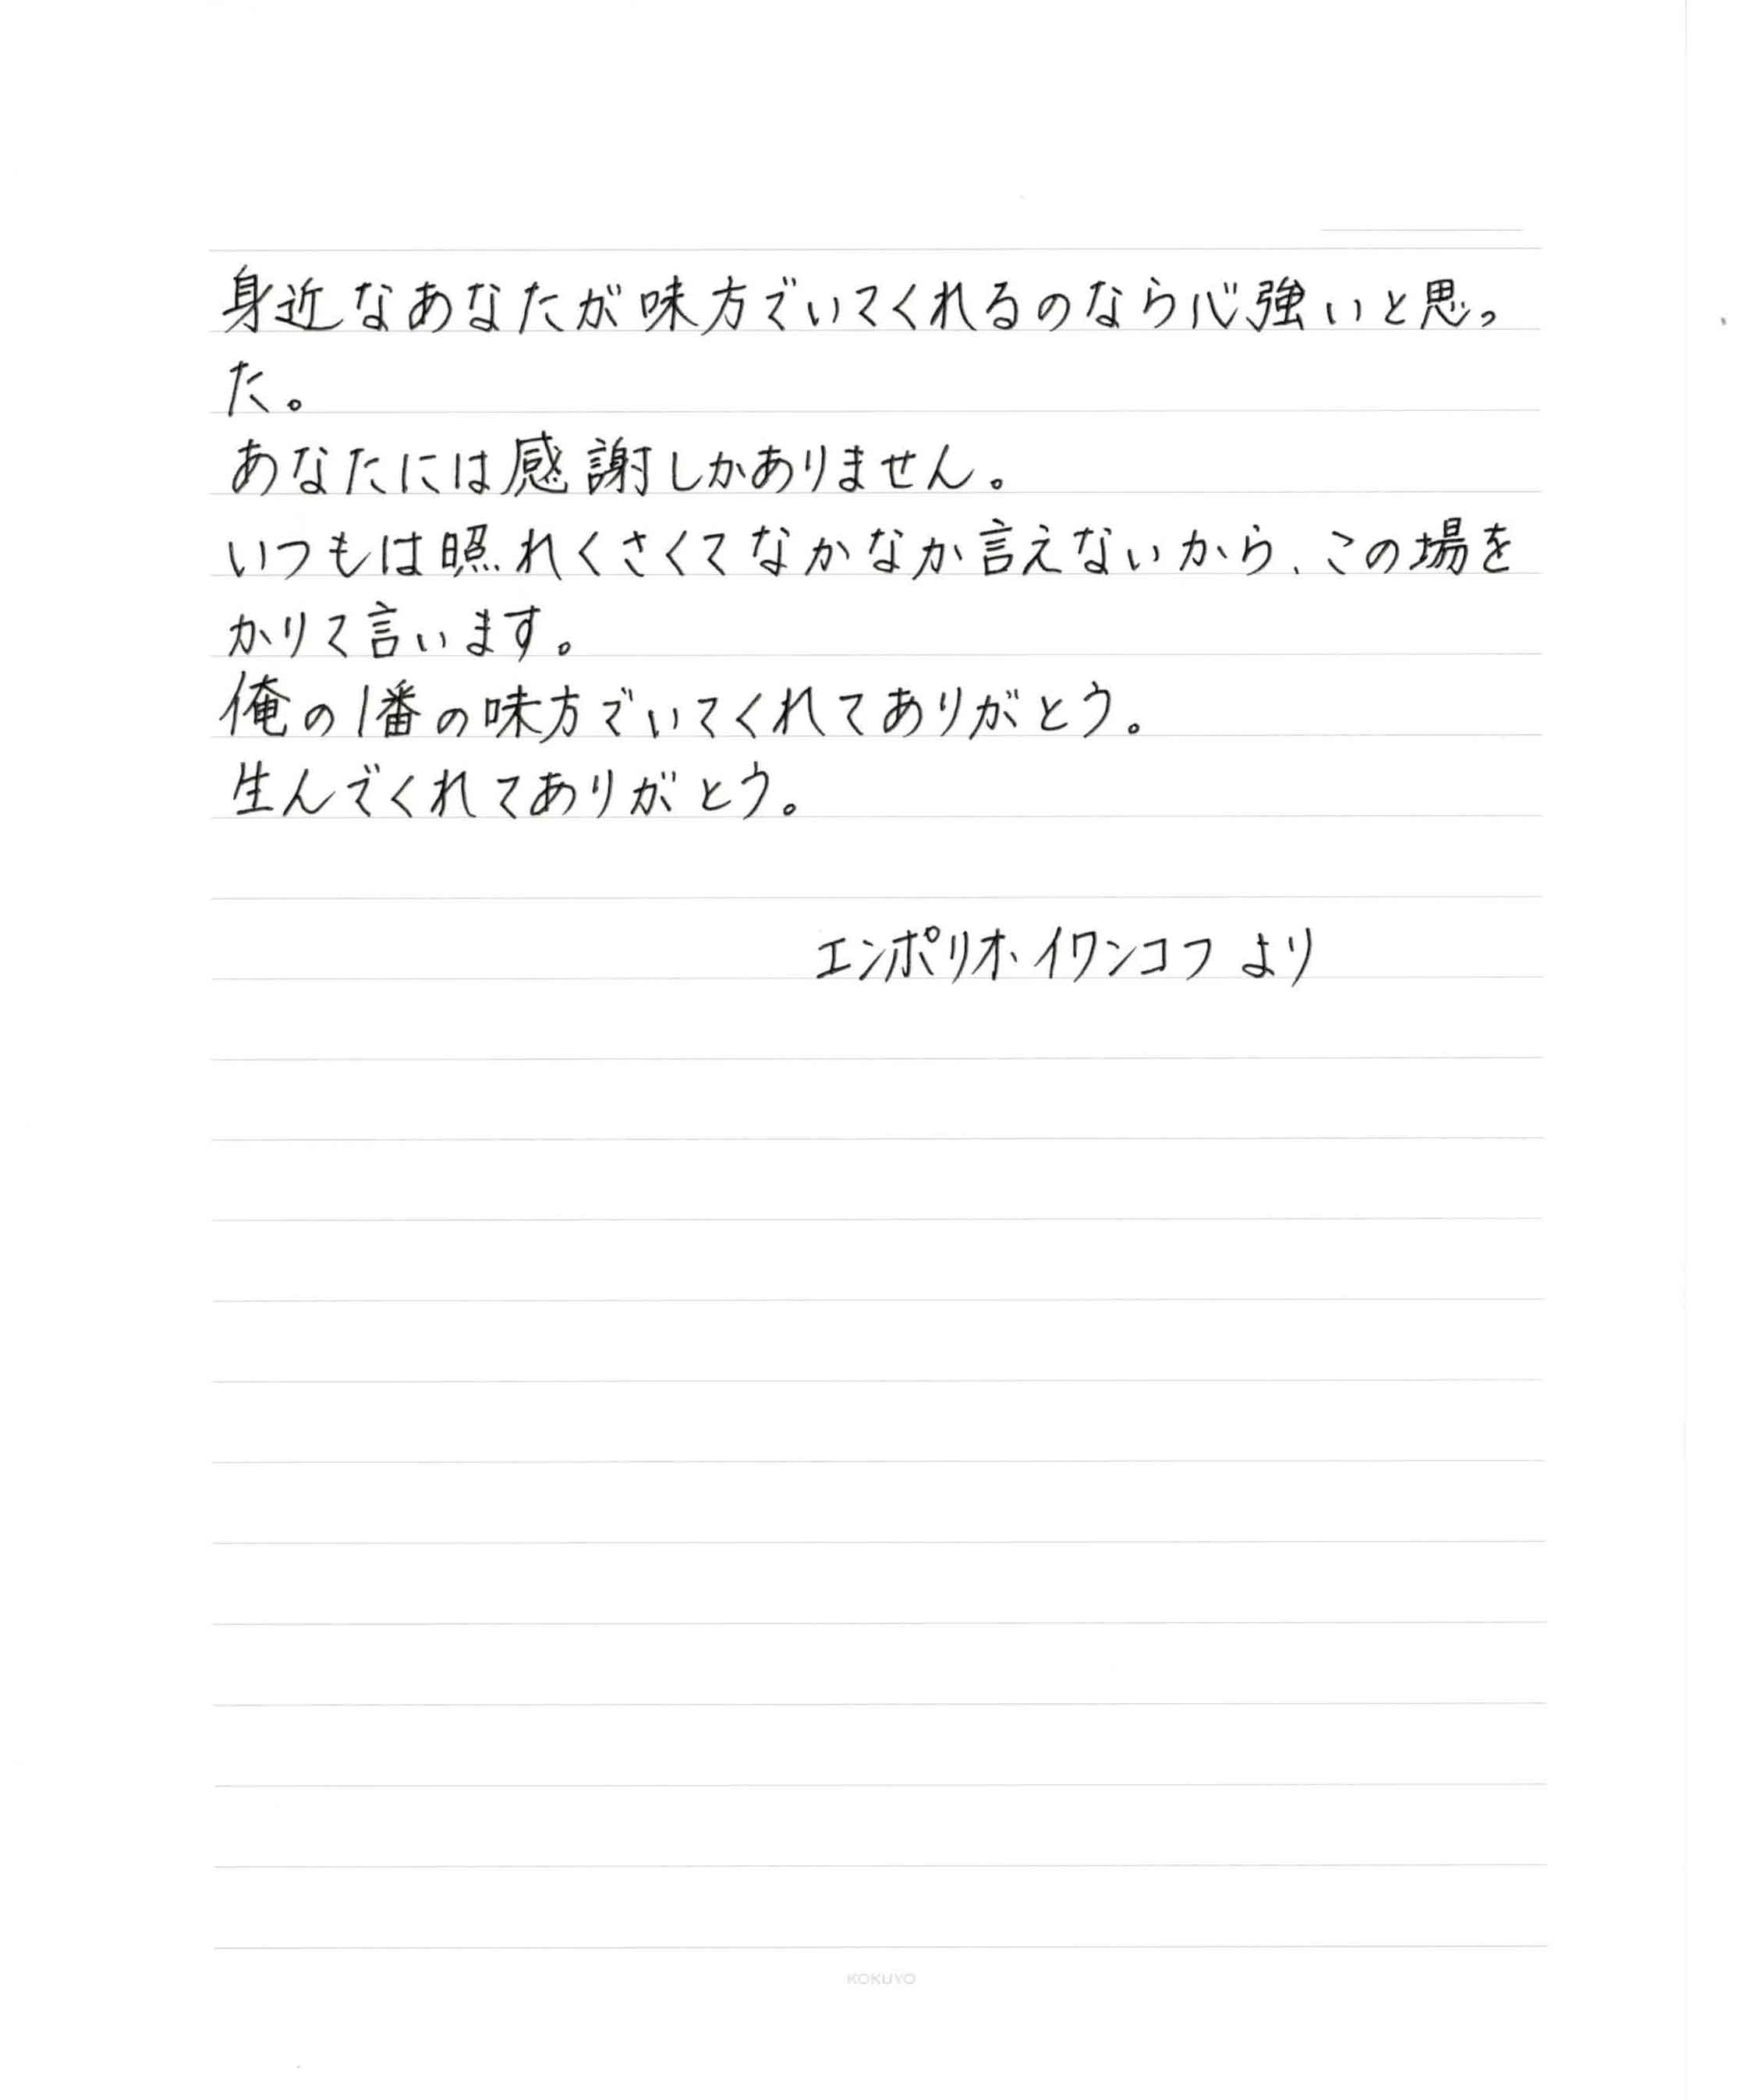 身近なあなたが味方でいてくれるのなら心強いと思っ
た。
あなたには感謝しかありません。
いつもは照れくさくてなかなか言えないから、この場を
かりて言います。
俺の1番の味方でいてくれてありがとう。
生んでくれてありがとう。
エンポリオ・イワンコフ より
KOKUYO